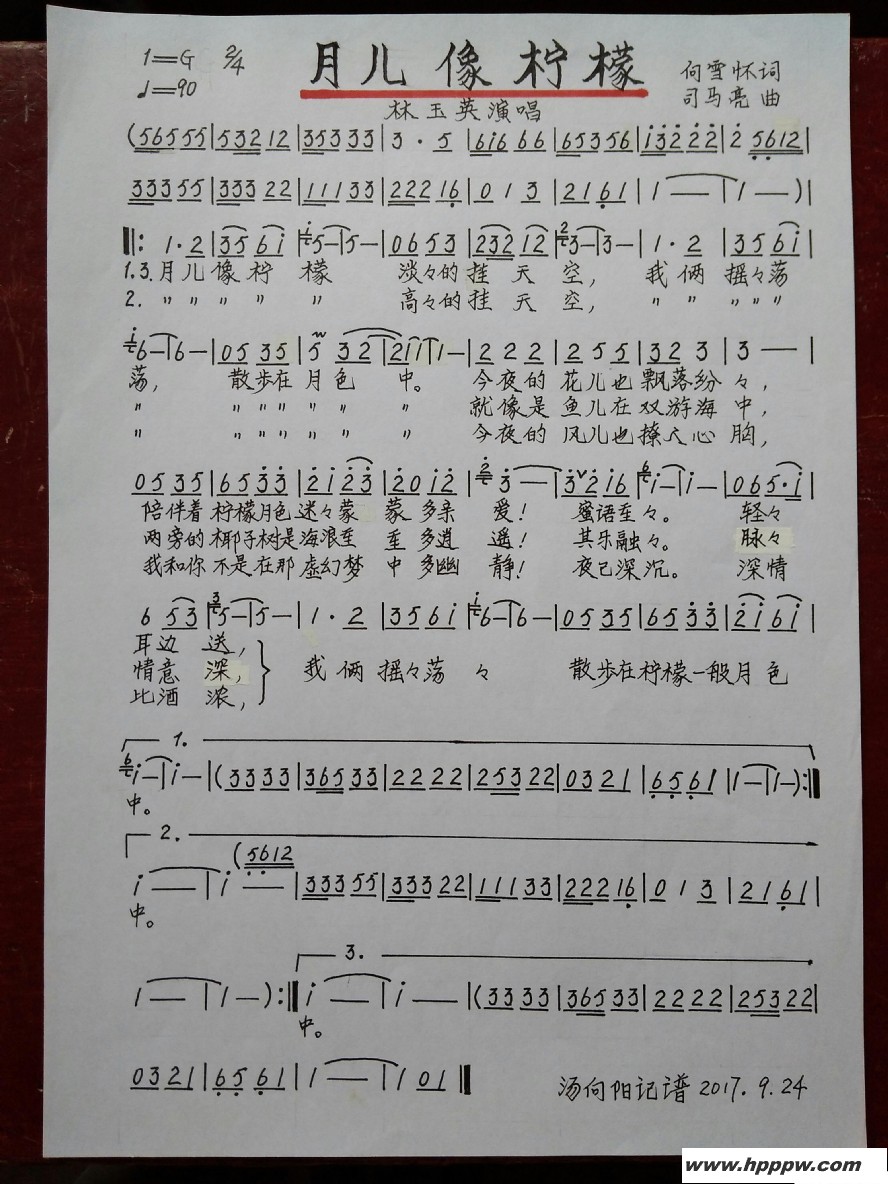 1=G 2/4 月儿像柠檬 何雪怀词
♩=90 林玉英演唱 司马亮曲
(565 55|532 12|353 33|3·5|6i6 66|653 56|i32 22|2 5612|
333 55|333 22|111 33|222 16|0 1 3|2 1 61|1 —|1 —)|
‖: 1·2|35 6i|5 —|5 —|06 53|232 12|3 —|3 —|1·2|35 6i|
1.3.月儿像柠 檬 淡々的挂 天 空, 我 俩 摇々荡
2. 〃 〃 〃 〃 〃 高々的挂 天 空, 〃 〃 〃 〃 〃
6 —|6 —|05 35|5 32|21 1|1 —|2 2 2|2 5 5|32 3|3 —|
荡, 散步在 月色 中。 今夜的 花儿也 飘落纷 々,
〃 〃 〃 〃 〃 〃 〃 就像是 鱼儿在 双游海 中,
〃 〃 〃 〃 〃 〃 〃 今夜的 风儿也 撩人心 胸,
05 35|65 33|2i 23|20 i2|3 —|3ᵛ2 i6|i —|i —|06 5·i|
陪伴着 柠檬月色 迷々蒙 蒙 多亲 爱! 蜜语至々。 轻々
两旁的 椰子树是 海浪至 至 多逍 遥! 其乐融々。 脉々
我和你 不是在那 虚幻梦 中 多幽 静! 夜已深沉。 深情
6 53|5 —|5 —|1·2|35 6i|6 —|6 —|05 35|65 33|2i 6i|
耳边 送,
情意 深, 我 俩 摇々荡 々 散步在柠檬一般月 色
比酒 浓,
1.
i —|i —|(33 33|365 33|22 22|253 22|03 21|65 61|1 —|1 —):‖
中。
2.
i —|i (5612|333 55|333 22|111 33|222 16|0 1 3|2 1 61|
中。
3.
1 —|1 —):‖i —|i —|(33 33|365 33|22 22|253 22|
中。
03 21|65 61|1 —|1 01‖ 汤向阳记谱 2017.9.24
www.hpppw.com